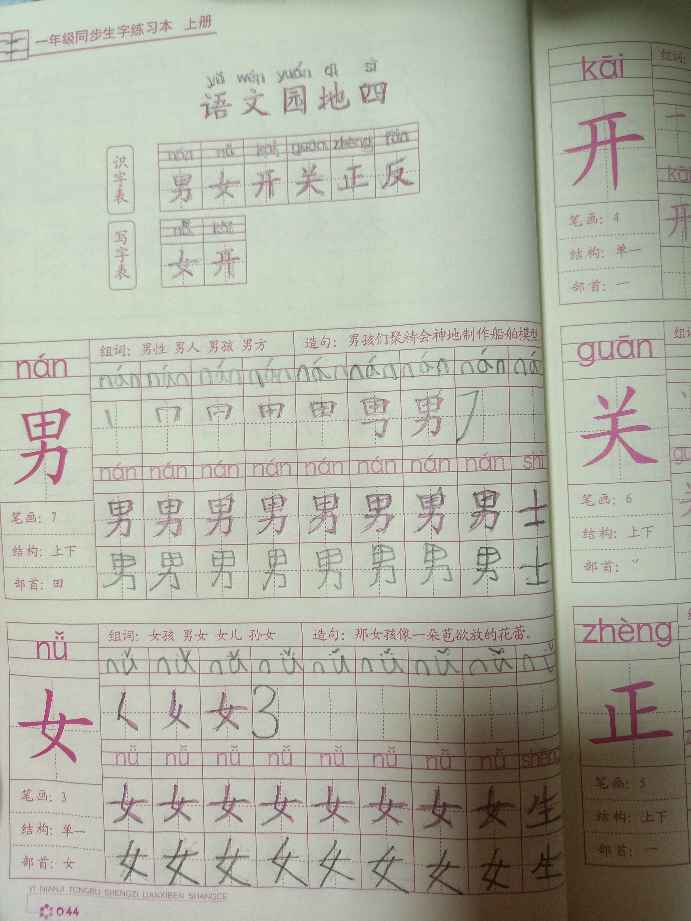 一年级同步生字练习本 上册
yǔ wén yuán dì sì
语文园地四
识字表
nán nǚ kāi guān zhèng fǎn
男 女 开 关 正 反
写字表
nǚ kāi
女 开
nán
男
笔画：7
结构：上下
部首：田
组词：男性 男人 男孩 男方
造句：男孩们聚精会神地制作船舶模型
nán nán nán nán nán nán nán nán ná
丨 冂 甲 男 男 7
nán nán nán nán nán nán nán nán shì
男 男 男 男 男 男 男 男 士
男 男 男 男 男 男 男 男 士
nǚ
女
笔画：3
结构：单一
部首：女
组词：女孩 男女 女儿 孙女
造句：那女孩像一朵苞欲放的花蕾.
nǚ nǚ nǚ nǚ nǚ nǚ nǚ nǚ nǚ
女 女 3
nǚ nǚ nǚ nǚ nǚ nǚ nǚ nǚ shēng
女 女 女 女 女 女 女 女 生
女 女 女 女 女 女 女 女 生
YI NIANJI TONGBU SHENGZI LIANXIBEN SHANGCE
044
kāi
开
笔画：4
结构：单一
部首：一
组词：
一
kāi
开
guān
关
笔画：6
结构：上下
部首：丷
zhèng
正
笔画：5
结构：上下
部首：一